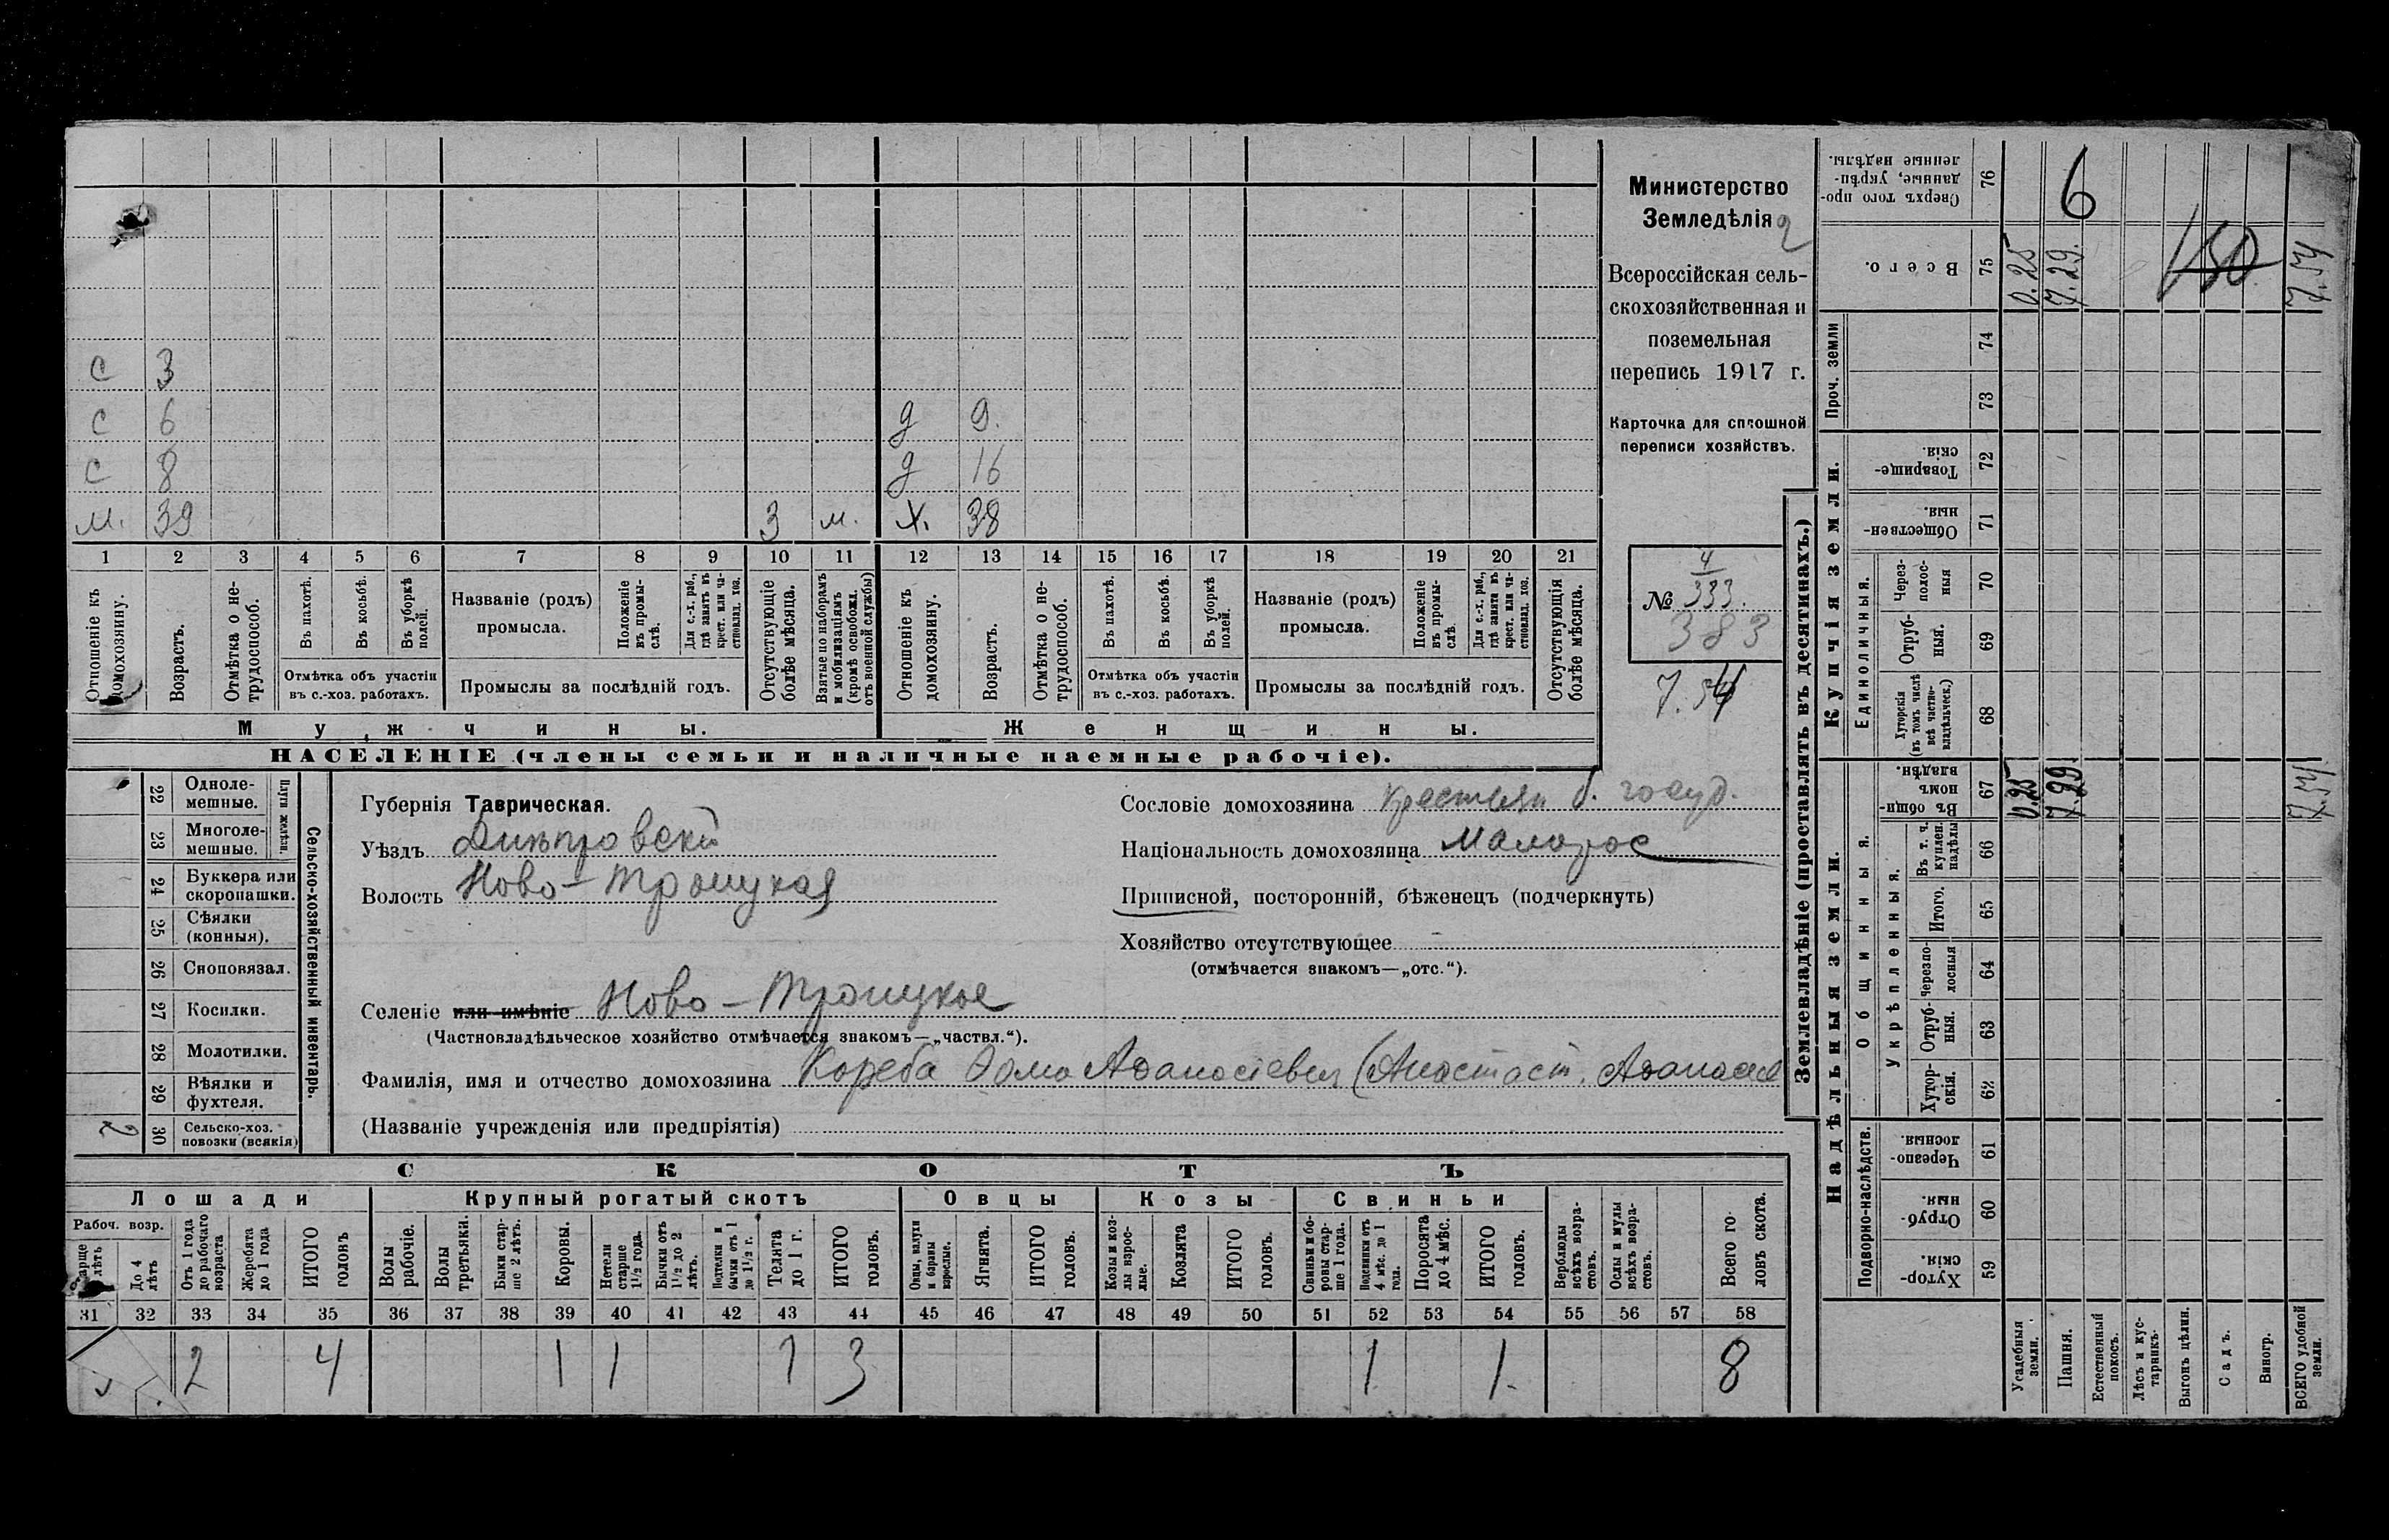 С 3
С 6 д 9.
С 8 д 16
М. 39 3 м. Х. 38
1 2 3 4 5 6 7 8 9 10 11 12 13 14 15 16 17 18 19 20 21
Отношеніе къ домохозяину.
Возрастъ.
Отмѣтка о не-трудоспособ.
Въ пахотѣ.
Въ косьбѣ.
Въ уборкѣ полей.
Отмѣтка объ участіи
въ с.-хоз. работахъ.
Названіе (родъ)
промысла.
Положеніе въ промы-слѣ.
Для с.-х. раб., гдѣ занятъ въ крест. или ча-стновлад. хоз.
Промыслы за послѣдній годъ.
Отсутствующіе болѣе мѣсяца.
Взятые по наборамъ и мобилизаціямъ (кромѣ освобожд. отъ военной службы)
Отношеніе къ домохозяину.
Возрастъ.
Отмѣтка о не-трудоспособ.
Въ пахотѣ.
Въ косьбѣ.
Въ уборкѣ полей.
Отмѣтка объ участіи
въ с.-хоз. работахъ.
Названіе (родъ)
промысла.
Положеніе въ промы-слѣ.
Для с.-х. раб., гдѣ занята въ крест. или ча-стновлад. хоз.
Промыслы за послѣдній годъ.
Отсутствующія болѣе мѣсяца.
Мужчины.
Женщины.
НАСЕЛЕНІЕ (члены семьи и наличные наемные рабочіе).
Министерство
Земледѣлія
Всероссійская сель-
скохозяйственная и
поземельная
перепись 1917 г.
Карточка для сплошной
переписи хозяйствъ.
4
№ 333.
383
7.54
22 Одноле-мешные.
23 Многоле-мешные.
Плуги желѣзн.
24 Буккера или скоропашки.
25 Сѣялки (конныя).
26 Сноповязал.
27 Косилки.
28 Молотилки.
29 Вѣялки и фухтеля.
2 30 Сельско-хоз. повозки (всякія)
Сельско-хозяйственный инвентарь.
Губернія Таврическая.
Уѣздъ Днѣпровскій
Волость Ново-Троицкая
Селеніе или имѣніе Ново-Троицкое
(Частновладѣльческое хозяйство отмѣчается знакомъ—„частвл.“).
Фамилія, имя и отчество домохозяина Кореба Фома Афанасіевич (Анастасія Афанасіев
(Названіе учрежденія или предпріятія)
Сословіе домохозяина крестьян б. госуд.
Національность домохозяина малорос
Приписной, посторонній, бѣженецъ (подчеркнуть)
Хозяйство отсутствующее
(отмѣчается знакомъ—„отс.“).
СКОТЪ
Лошади
Крупный рогатый скотъ
Овцы
Козы
Свиньи
Рабоч. возр.
До 4 лѣтъ
Отъ 1 года до рабочаго возраста
Жеребята до 1 года
ИТОГО головъ
Волы рабочіе.
Волы третьяки.
Быки стар-ше 2 лѣтъ.
Коровы.
Нетели старше 1½ года.
Бычки отъ 1½ до 2 лѣтъ.
Подтелки и бычки отъ 1 до 1½ г.
Телята до 1 г.
ИТОГО головъ.
Овцы, валухи и бараны взрослые.
Ягнята.
ИТОГО головъ.
Козы и коз-лы взрос-лые.
Козлята
ИТОГО головъ.
Свиньи и бо-ровы стар-ше 1 года.
Подсвинки отъ 4 мѣс. до 1 года.
Поросята до 4 мѣс.
ИТОГО головъ.
Верблюды всѣхъ возра-стовъ.
Ослы и мулы всѣхъ возра-стовъ.
Всего го-ловъ скота.
31 32 33 34 35 36 37 38 39 40 41 42 43 44 45 46 47 48 49 50 51 52 53 54 55 56 57 58
2 4 1 1 1 3 1 1. 8
Землевладѣніе (проставлять въ десятинахъ.)
Сверхъ того про-данные, укрѣп-ленные надѣлы. 76 6
Всего. 75 0.25 7.29. 150 7.54
Проч. земли 74
73
Купчія земли.
Товарище-скія. 72
Обществен-ныя. 71
Единоличныя.
Через-полос-ныя 70
Отруб-ныя. 69
Хуторскія (въ томъ числѣ всѣ частно-владѣльческ.) 68
Надѣльныя земли.
Общинныя.
Въ общин-номъ владѣн. 67 0.25 7.29 7.54
Укрѣпленныя.
Въ т. ч. куплен. надѣлы 66
Итого. 65
Черезпо-лосныя 64
Отруб-ныя. 63
Хутор-скія. 62
Подворно-наслѣдств.
Черезпо-лосныя. 61
Отруб-ныя. 60
Хутор-скія. 59
Усадебныя земли.
Пашня.
Естественный покосъ.
Лѣсъ и кус-тарникъ.
Выгонъ цѣлин.
Садъ.
Виногр.
ВСЕГО удобной земли.